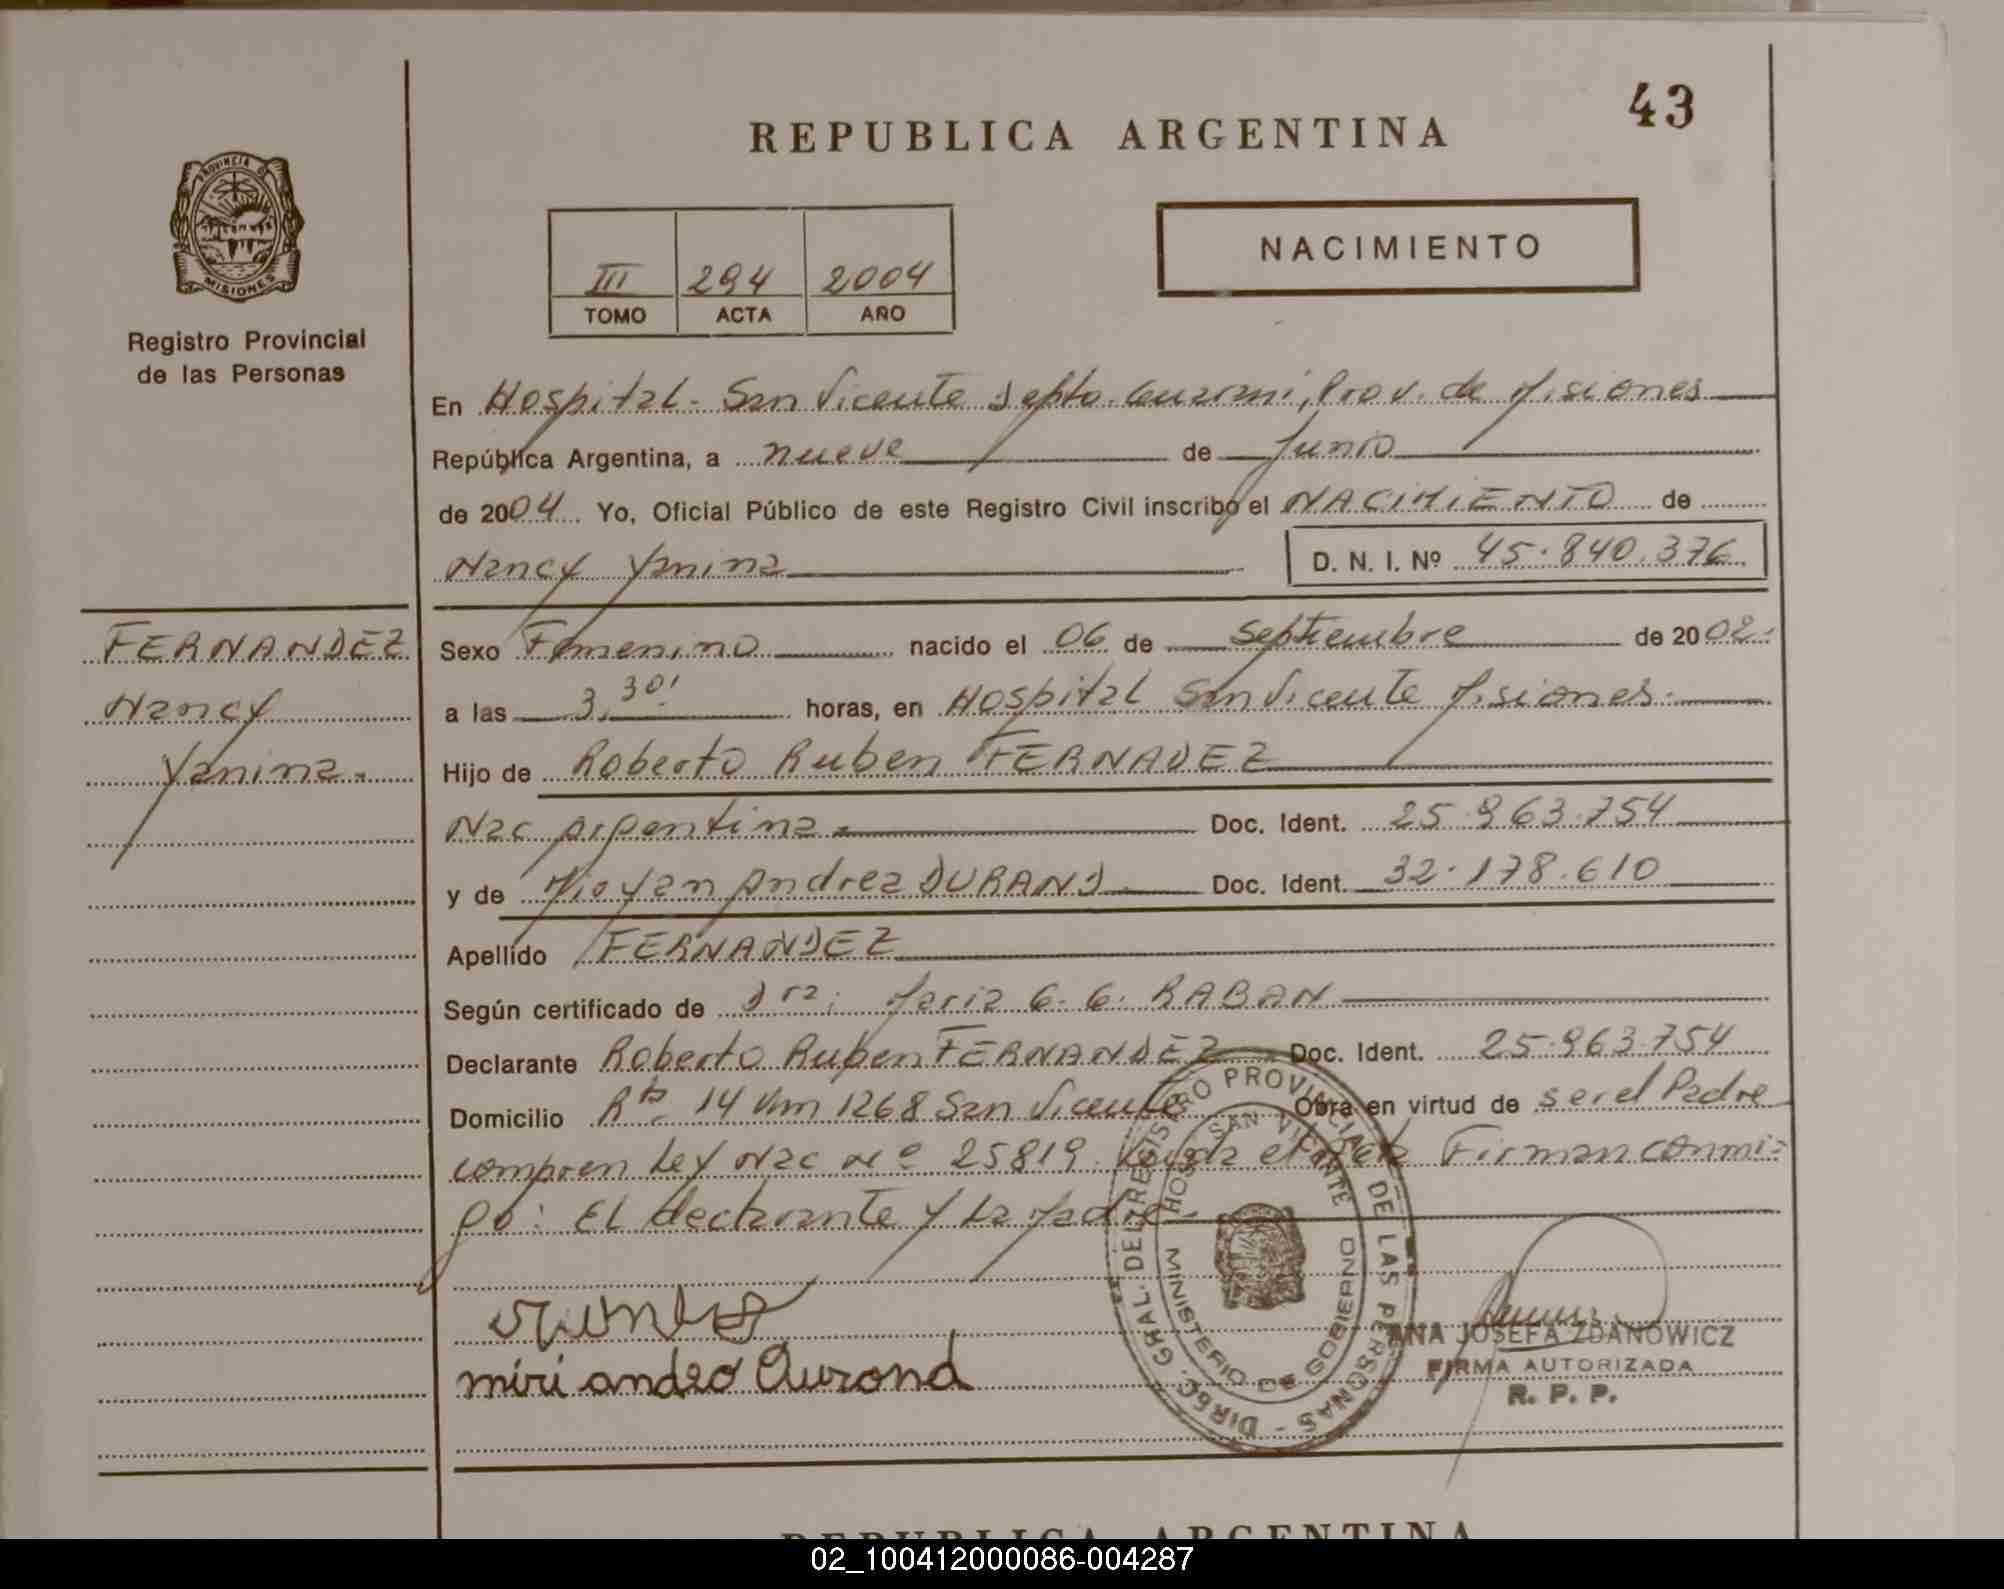 43
REPUBLICA ARGENTINA
PROVINCIA DE
MISIONES
Registro Provincial
de las Personas
NACIMIENTO
III 294 2004
TOMO ACTA AÑO
En Hospital - San Vicente Depto. Guarani, Prov. de Misiones
República Argentina, a nueve de Junio
de 2004 Yo, Oficial Público de este Registro Civil inscribo el NACIMIENTO de
Nancy Yanina D. N. I. Nº 45.840.376
FERNANDEZ
Nancy
Yanina.
Sexo Femenino nacido el 06 de septiembre de 2002.
a las 3,30' horas, en Hospital San Vicente Misiones.
Hijo de Roberto Ruben FERNADEZ
Nac Argentina. Doc. Ident. 25.963.754
y de Andrea DURAND Doc. Ident. 32.178.610
Apellido FERNANDEZ
Según certificado de Dra; Maria G. G. RABAN
Declarante Roberto Ruben FERNANDEZ Doc. Ident. 25.963.754
Domicilio Rta. 14 Km 1268 San Vicente Obra en virtud de ser el Padre
compren Ley Nac nº 25819. Leida el Acta Firman conmi=
go: El declarante y La Madre.
DIREC. GRAL. DEL REGISTRO PROVINCIAL DE LAS PERSONAS -
HOSP. SAN VICENTE
MINISTERIO DE GOBIERNO
miri andreo Durond
ANA JOSEFA ZDANOWICZ
FIRMA AUTORIZADA
R. P. P.
REPUBLICA ARGENTINA
02_100412000086-004287